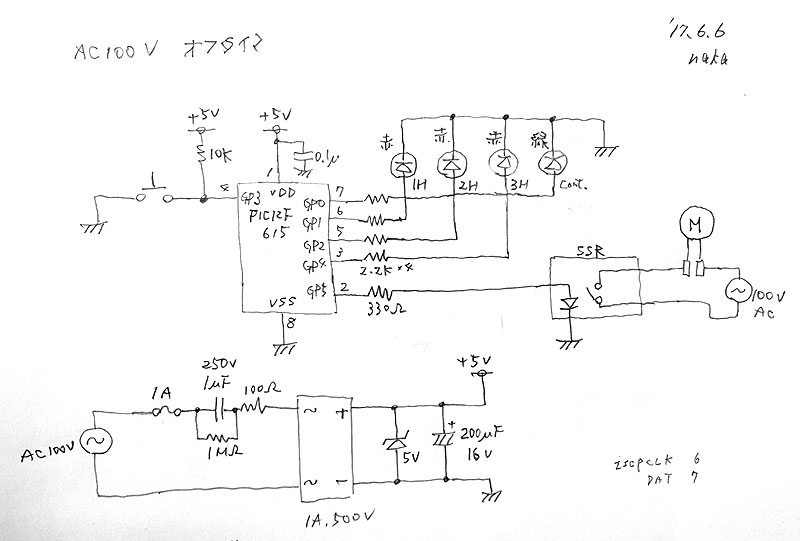 AC100V オフタイマ
'17.6.6
naka
+5V
+5V
10K
0.1μ
赤
赤
赤
緑
1H
2H
3H
Cont.
1
4
GP3
VDD
PIC12F
615
VSS
8
GP0
7
GP1
6
GP2
5
GP4
3
GP5
2
2.2K×4
330Ω
SSR
M
100V
AC
AC100V
1A
250V
1μF
100Ω
1MΩ
~
~
+
-
1A,500V
5V
+
200μF
16V
+5V
ISCPCLK 6
DAT 7